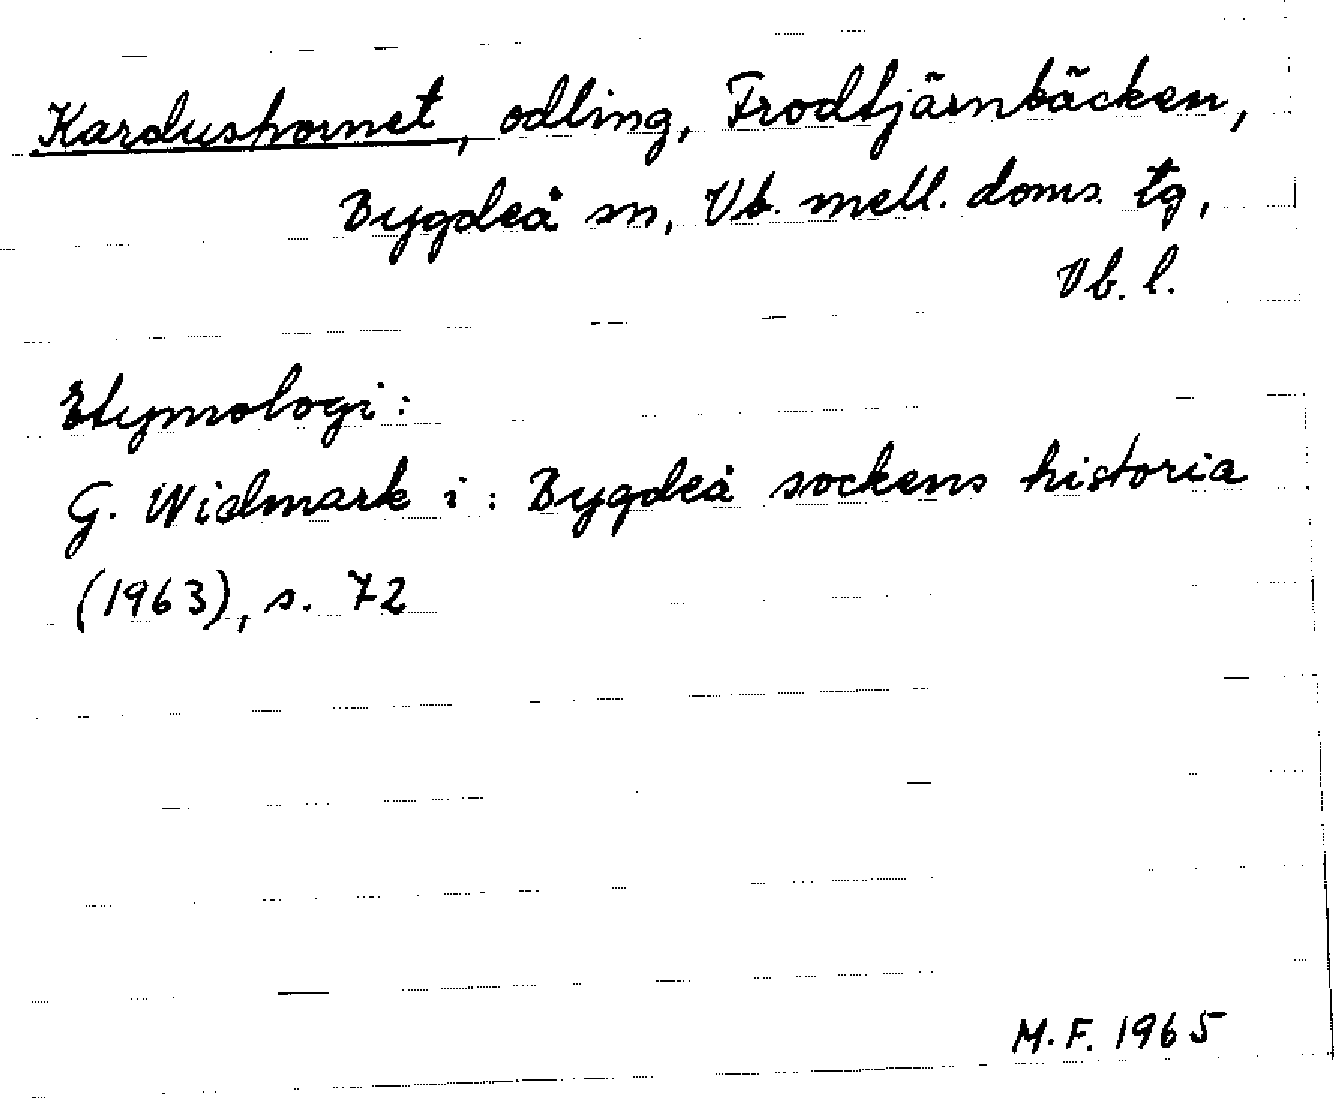 Kardushornet, odling, Frodtjärnbäcken,
Bygdeå sn, Vb. mell. doms. tg,
Vb. l.
Etymologi:
G. Widmark i: Bygdeå sockens historia
(1963), s. 72
M.F. 1965